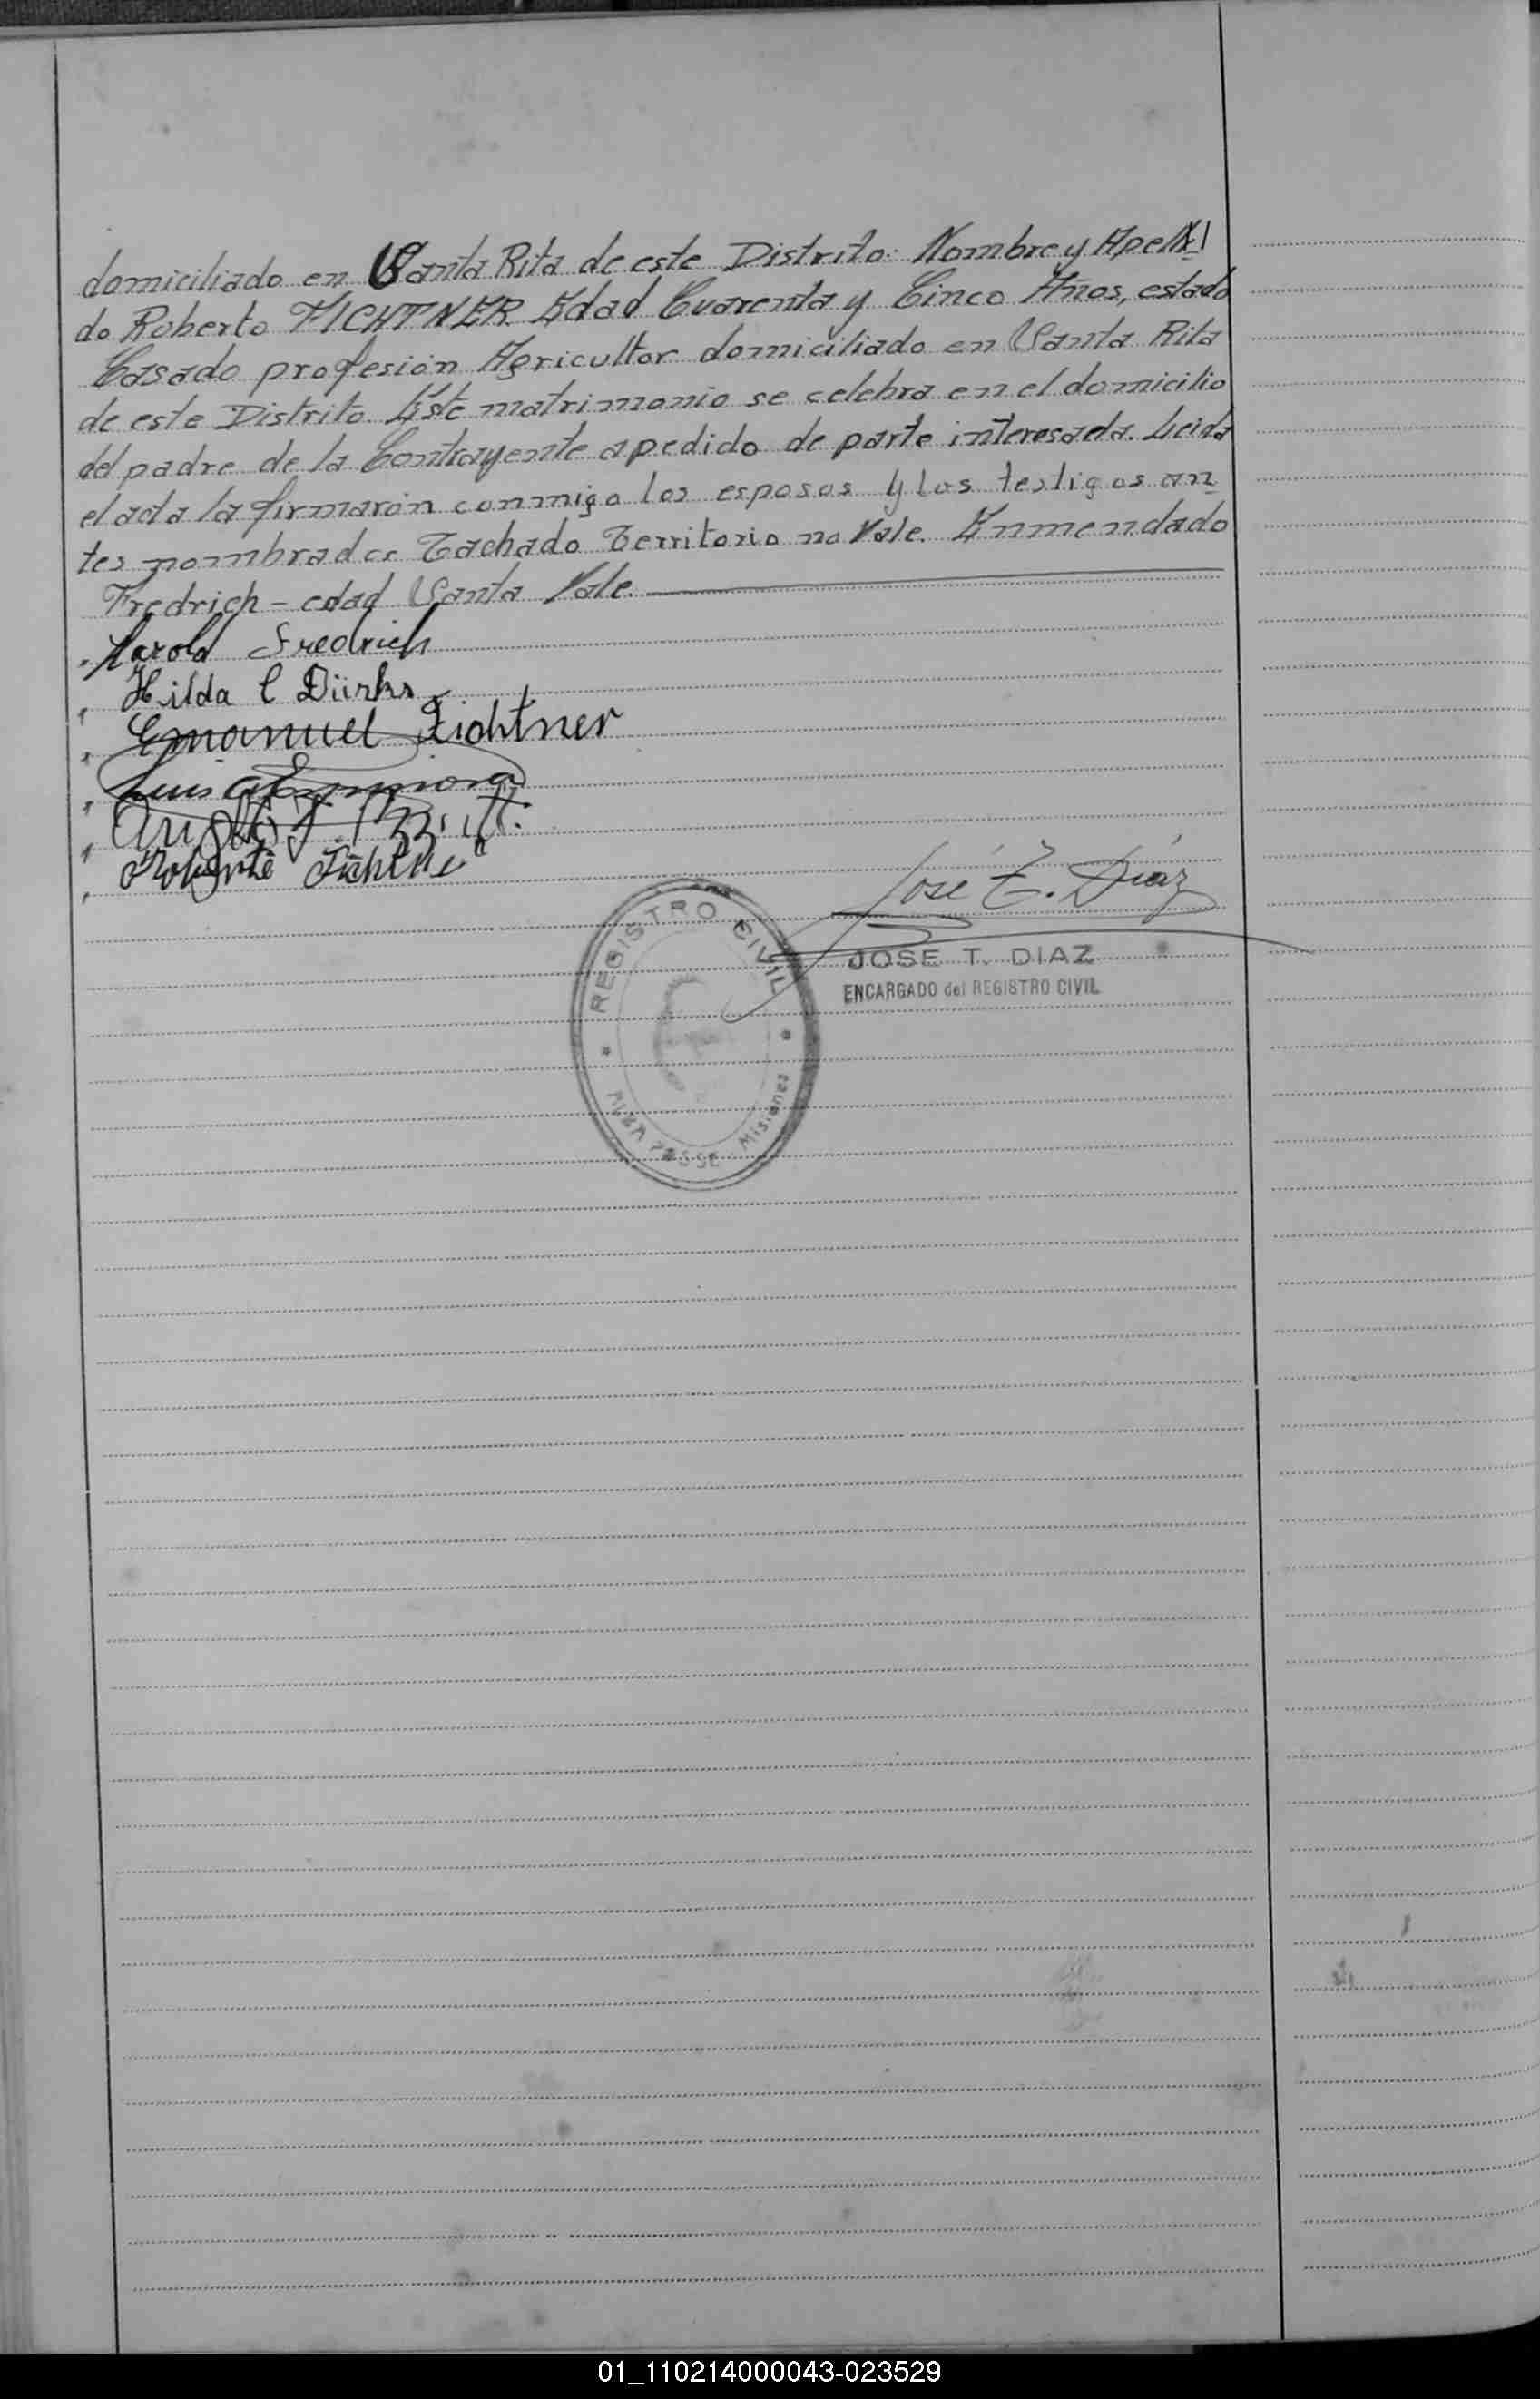 domiciliado en Santa Rita de este Distrito: Nombre y Apelli
do Roberto FICHTNER Edad Cuarenta y Cinco Años, estado
Casado profesión Agricultor domiciliado en Santa Rita
de este Distrito Este matrimonio se celebra en el domicilio
del padre de la Contrayente a pedido de parte interesada. Leida
el acta la firmarón conmigo los esposos y los testigos an
tes nombrados Tachado Territorio no Vale. Enmendado
Fredrich - edad Santa Vale.
Harold Fredrich
Hilda C Dürks
Emanuel Fichtner
Luis
Roberto Fichtner
José T. Díaz
JOSE T. DIAZ
ENCARGADO del REGISTRO CIVIL
REGISTRO CIVIL
ALBA POSSE - Misiones
01_110214000043-023529